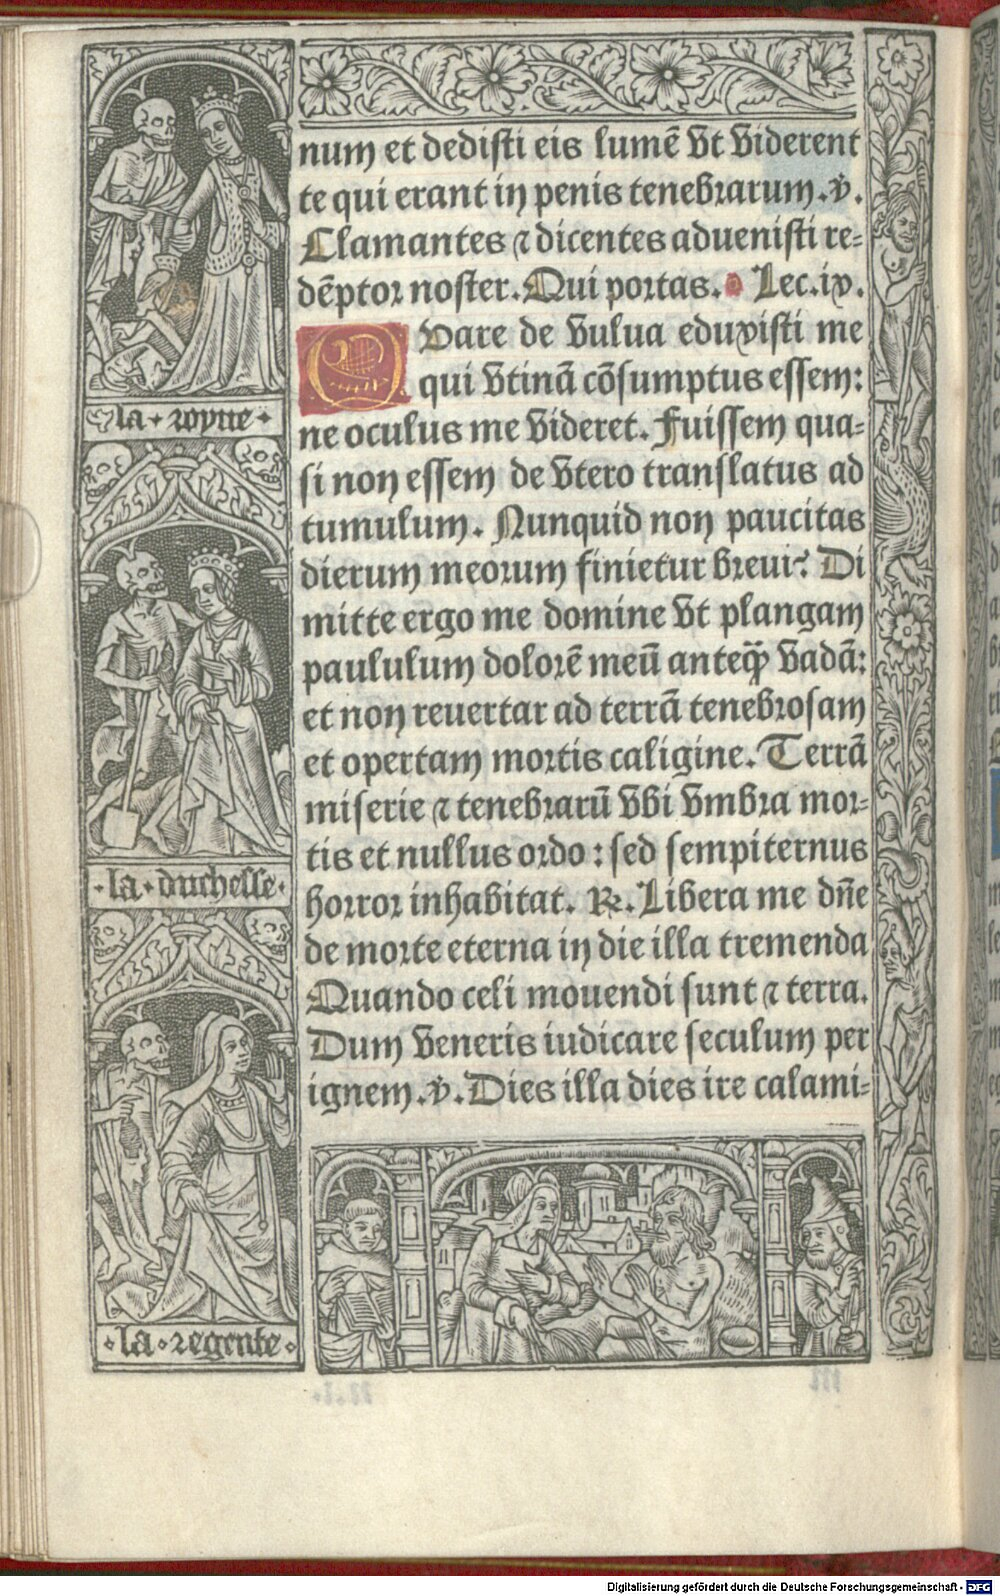 num et dedisti eis lumē vt viderent
te qui erant in penis tenebrarum. ℣.
Clamantes ⁊ dicentes aduenisti re-
dēptor noster. Qui portas. Lec. ix.
Quare de vulua eduxisti me
qui vtinā cōsumptus essem:
ne oculus me videret. Fuissem qua-
si non essem de vtero translatus ad
tumulum. Nunquid non paucitas
dierum meorum finietur breui? Di
mitte ergo me domine vt plangam
paululum dolorē meū anteꝙ̄ vadā:
et non reuertar ad terrā tenebrosam
et opertam mortis caligine. Terrā
miserie ⁊ tenebrarū vbi vmbra mor-
tis et nullus ordo: sed sempiternus
horror inhabitat. ℟. Libera me dn̄e
de morte eterna in die illa tremenda
Quando celi mouendi sunt ⁊ terra.
Dum veneris iudicare seculum per
ignem. ℣. Dies illa dies ire calami-
la royne
la duchesse
la regente
Digitalisierung gefördert durch die Deutsche Forschungsgemeinschaft - DFG